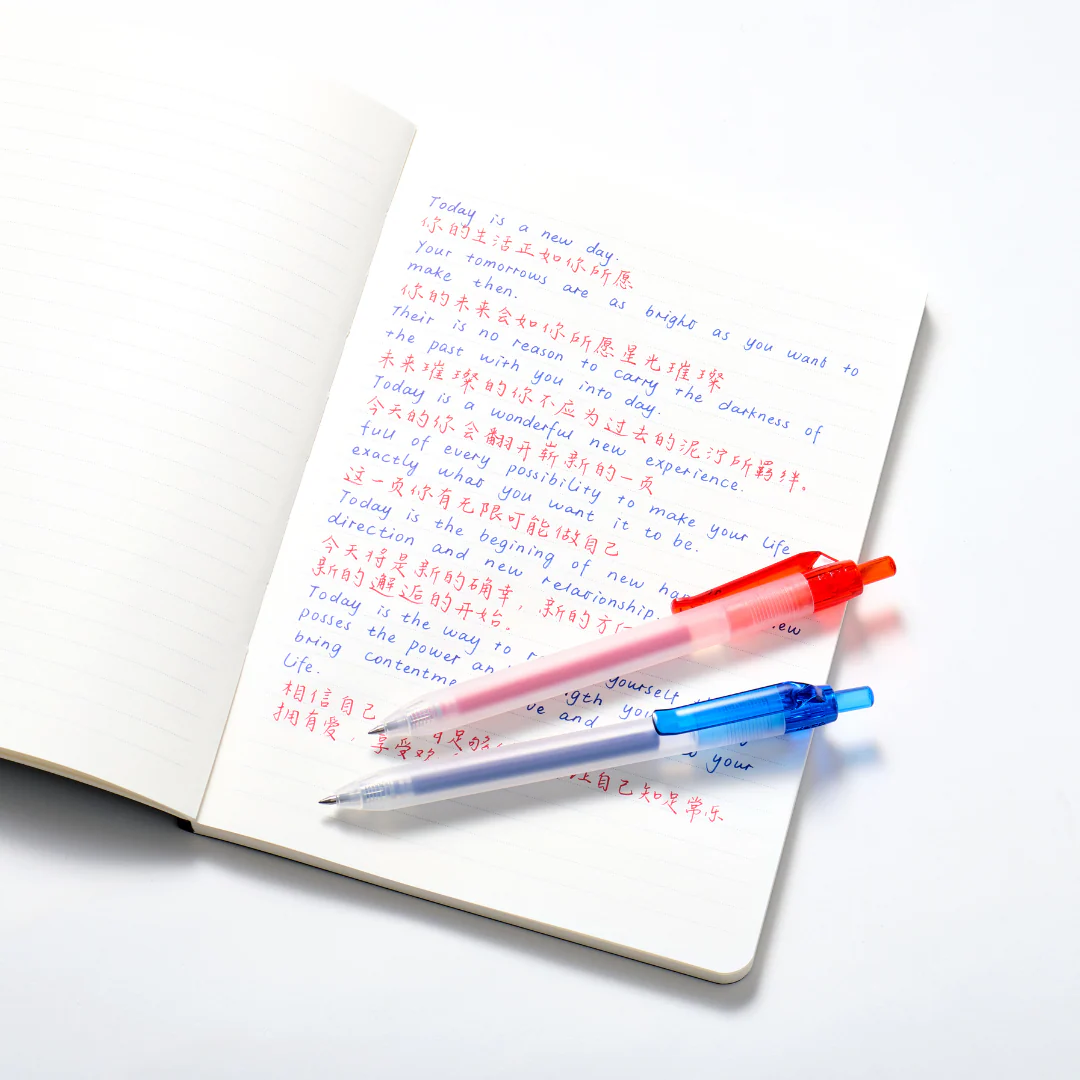 Today is a new day.
你的生活正如你所愿
Your tomorrows are as bright as you want to
make then.
你的未来会如你所愿星光璀璨
Their is no reason to carry the darkness of
the past with you into day.
未来璀璨的你不应为过去的泥泞所羁绊。
Today is a wonderful new experience.
今天的你会翻开崭新的一页
full of every possibility to make your life
exactly what you want it to be.
这一页你有无限可能做自己
Today is the begining of new
direction and new relationship.
今天将是新的确幸，新的方
新的邂逅的开始.
Today is the way to yourself
posses the power
bring and your
life.
相信自己 足够
拥有爱，享受欢 自己知足常乐